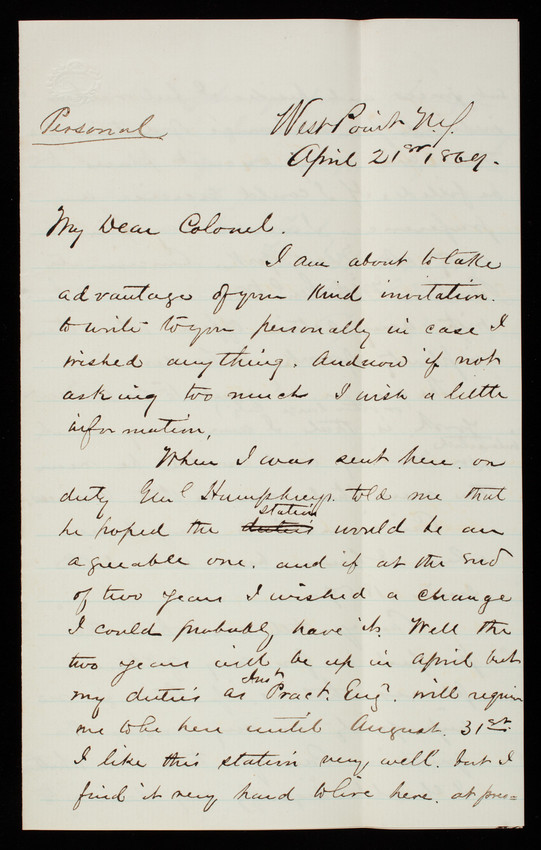 Personal
West Point N.Y.
April 21st, 1869.
My Dear Colonel.
I am about to take
advantage of your kind invitation.
to write to you personally in case I
wished anything. And now if not
asking too much I wish a little
information,
When I was sent here. on
duty Genl Humphreys. told me that
station
he hoped the duties would be an
agreeable one. and if at the end
of two years I wished a change
I could probably have it. Well the
two years will be up in April but
Inst.
my duties as Pract. Eng. will require
me to be here until August. 31st.
I like this station very well. but I
find it very hard to live here. at pres=